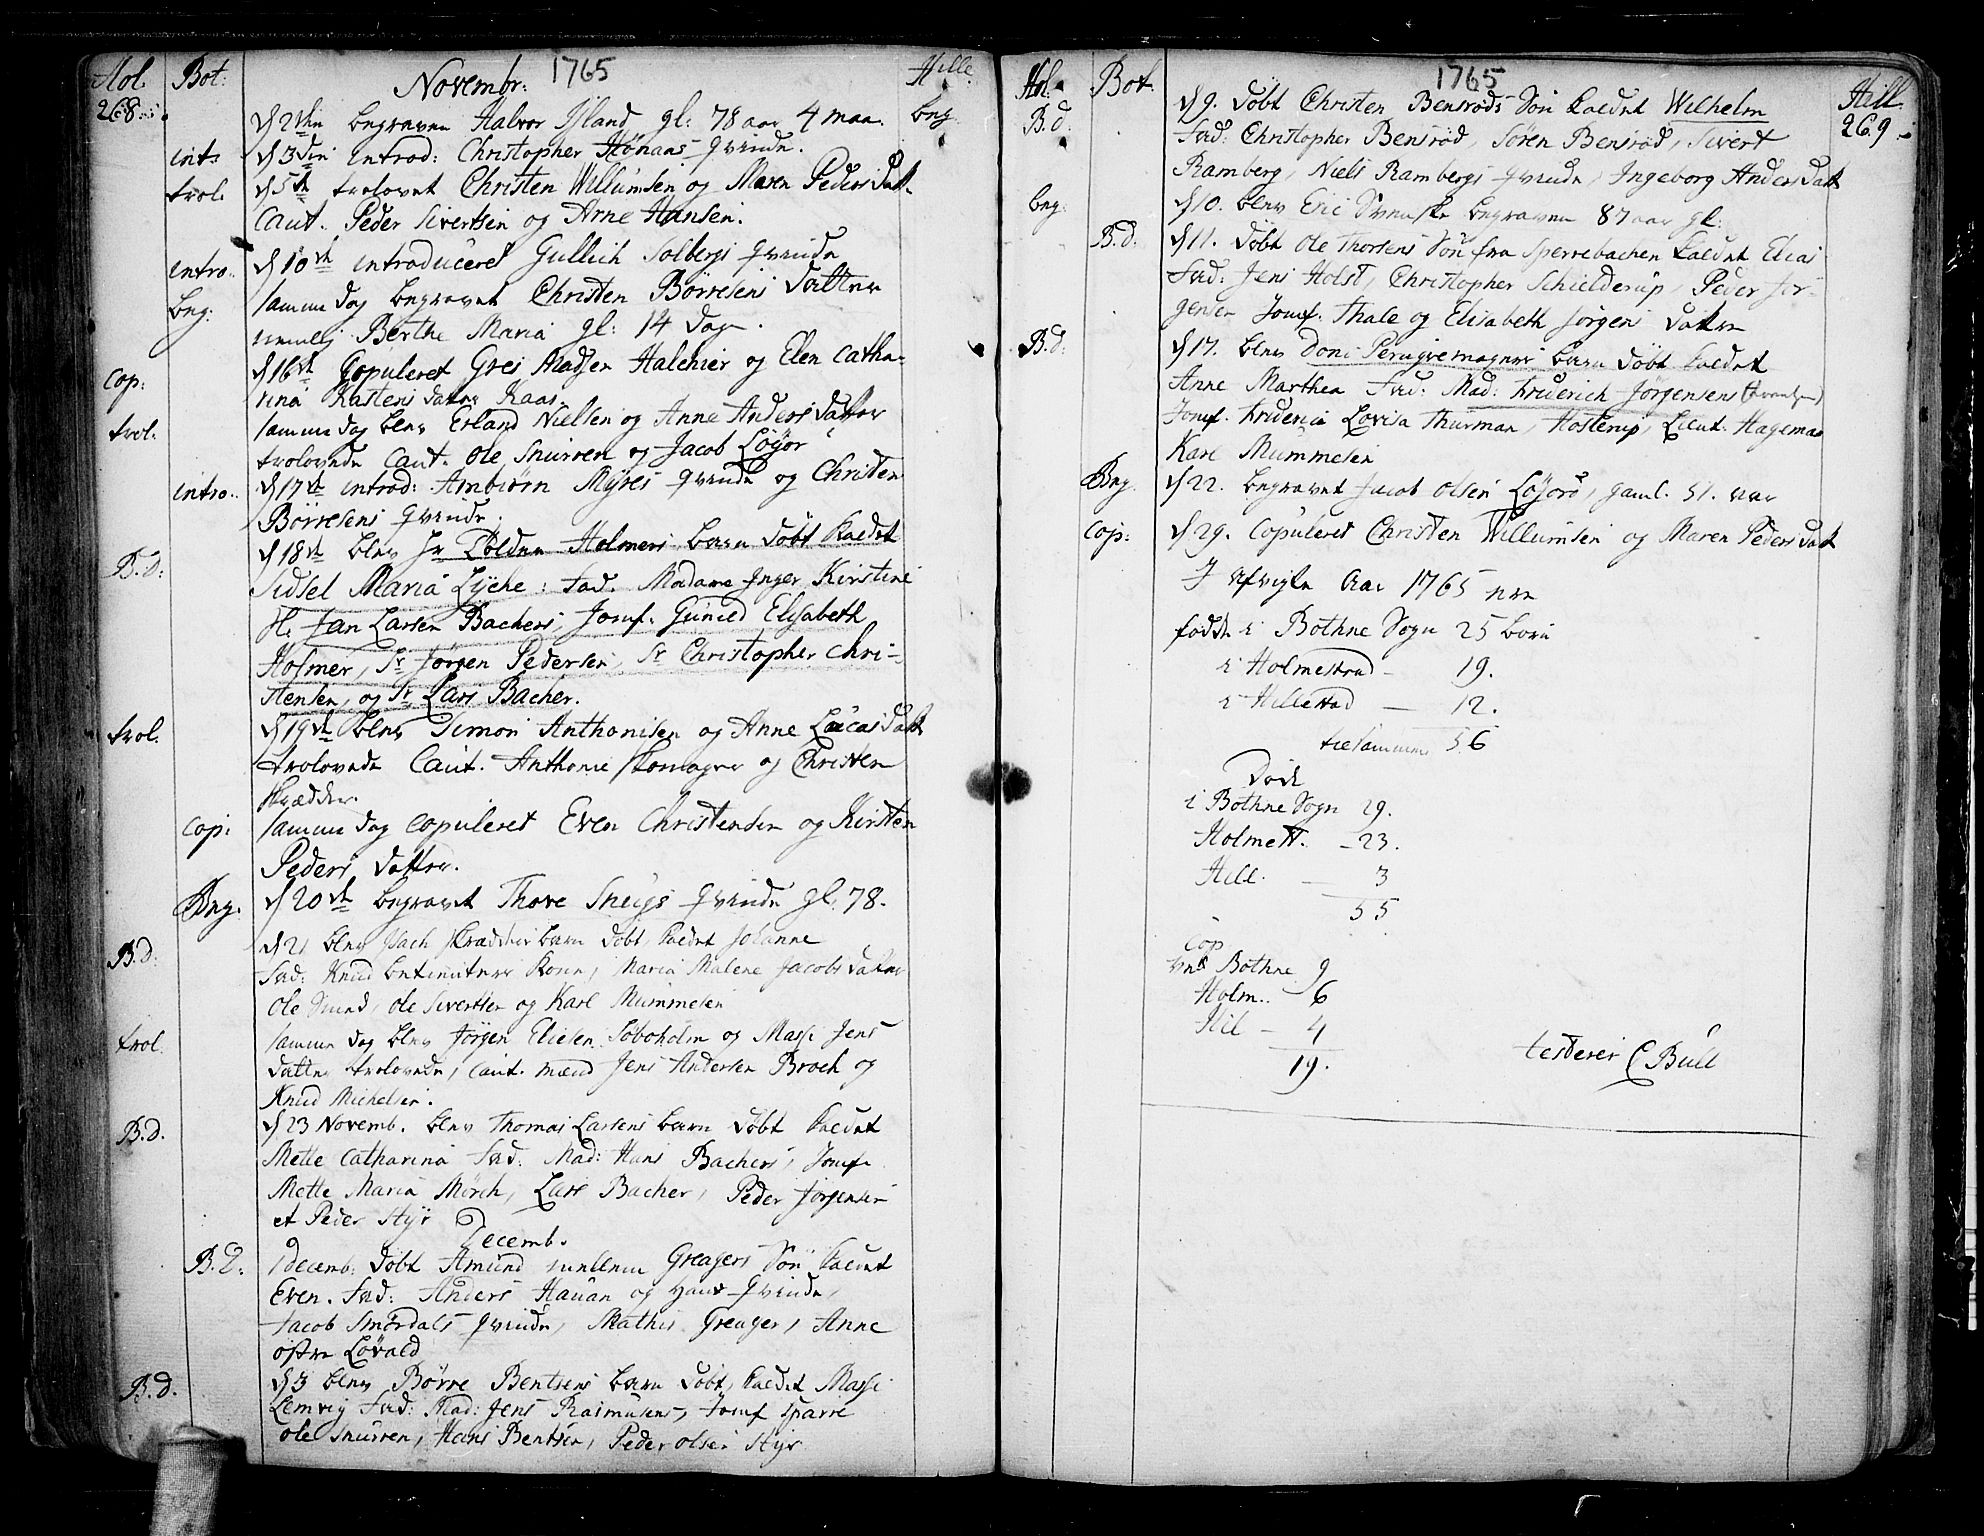 Hol. Bot: Novembr: 1765 Hille
268
d 2den begraven Halvor Island gl: 78 aar 4 maa. beg.
int: d 3den Introd: Christopher Hønaas qvinde.
trol. d 5te trolovet Christen Willumsen og Maren Peders Datt.
Caut. Peder Sivertsen og Arne Hansen.
intro. d 10de introduceret Gullich Solbergs qvinde
beg: samme dag begravet Christen Börresens Datter
nemlig Berthe Maria gl: 14 Dage.
cop: d 16de Copuleret Gres Madsen Halchier og Elen Catha-
rina Kastens datter Kaas.
trol. samme dag blev Erland Nielsen og Anne Anders datter
trolovede Caut. Ole Snurren og Jacob Löjor
intro. d 17de introd: Ambiörn Myres qvinde og Christen
Börresens qvinde.
B.d: d 18de blev Hr Bolden Holmers barn döbt kaldet
Sidsel Maria Lyche: Fad. Madame Inger Kirstine
H. Jan Larsen Bachers, Jomf. Gunild Elisabeth
Holmer, Sr Jörgen Pedersen, Sr Christopher Chri-
stensen, og Sr Lars Bacher.
trol. d 19de blev Simon Anthonisen og Anne Lucas Datt
trolovede Caut. Anthonie Skomager og Christen
Skrædder.
cop: samme dag copuleret Even Christensen og Kirsten
Peders datter.
Beg. d 20de begravet Thore Sneigs qvinde gl. 78.
B.d: d 21 blev Isach Skrædders barn döbt kaldet Johanne
Fad: Knud betienters kone, Maria Malene Jacobs datter
Ole Smed, Ole Sivertsen og Karl Mummesen
trol. samme dag blev Jörgen Eliesen Soboholm og Masse Jens
datter trolovede, Caut. mænd Jens Andersen Broch og
Knud Michelsen.
B.d. d 23 Novemb. blev Thomas Larsens barn döbt kaldet
Mette Catharina Fad: Mad: Hans Bachers, Jomf.
Mette Maria Mörch, Lars Bacher, Peder Jörgensen
et Peder Styr
Decemb.
B.D. 1 decemb: döbt Amund Greagers Sön kaldet
Even. Fad: Anders Hauan og hans qvinde,
Jacob Smördals qvinde, Mathis Greager, Anne
östre Lövald
B.d. d 3 blev Börre Bentsens barn döbt, kaldet Masse
Lemvig Fad: Mad: Jens Rasmusens, Jomf Sparre
Ole Snurren, Hans Bentsen, Peder Olsen Styr
Hol. Bot. 1765 Hill.
269
B.d: d 9. döbt Christen Bensröds Sön kaldet Wilhelm
Fad: Christopher Bensröd, Sören Bensröd, Sivert
Ramberg, Niels Rambergs qvinde, Ingeborg Anders Datt
beg: d 10. blev Eric Svenske begraven 87 aar gl:
B.d: d 11. döbt Ole Thorsens Sön fra Sperrebachen kaldet Elias
Fad: Jens Holst, Christopher Schielderup, Peder Jör-
gensen Jomf: Thale og Elisabeth Jörgens datter
B.d: d 17. blev Doni Perugvemagers barn döbt kaldet
Anne Marthea Fad: Mad: Friderich Jörgensens
Jomf. Friderica Lovisa Thurman, Hosterup, Lieut: Hageman
Karl Mummesen
Beg. d 22. begravet Jacob Olsen Löjord, gaml. 51. aar
cop: d 29. Copuleret Christen Willumsen og Maren Peders Datt
I afvigte Aar 1765 ere
födde i Bothne Sogn 25 börn
i Holmestrad - 19.
i Hillestad — 12.
tilsammen 56
Döde
i Bothne Sogn 29.
Holmest. - 23.
Hill. — 3
55
cop
ved Bothne 9
Holm. 6
Hil - 4
19.
testerer C Bull